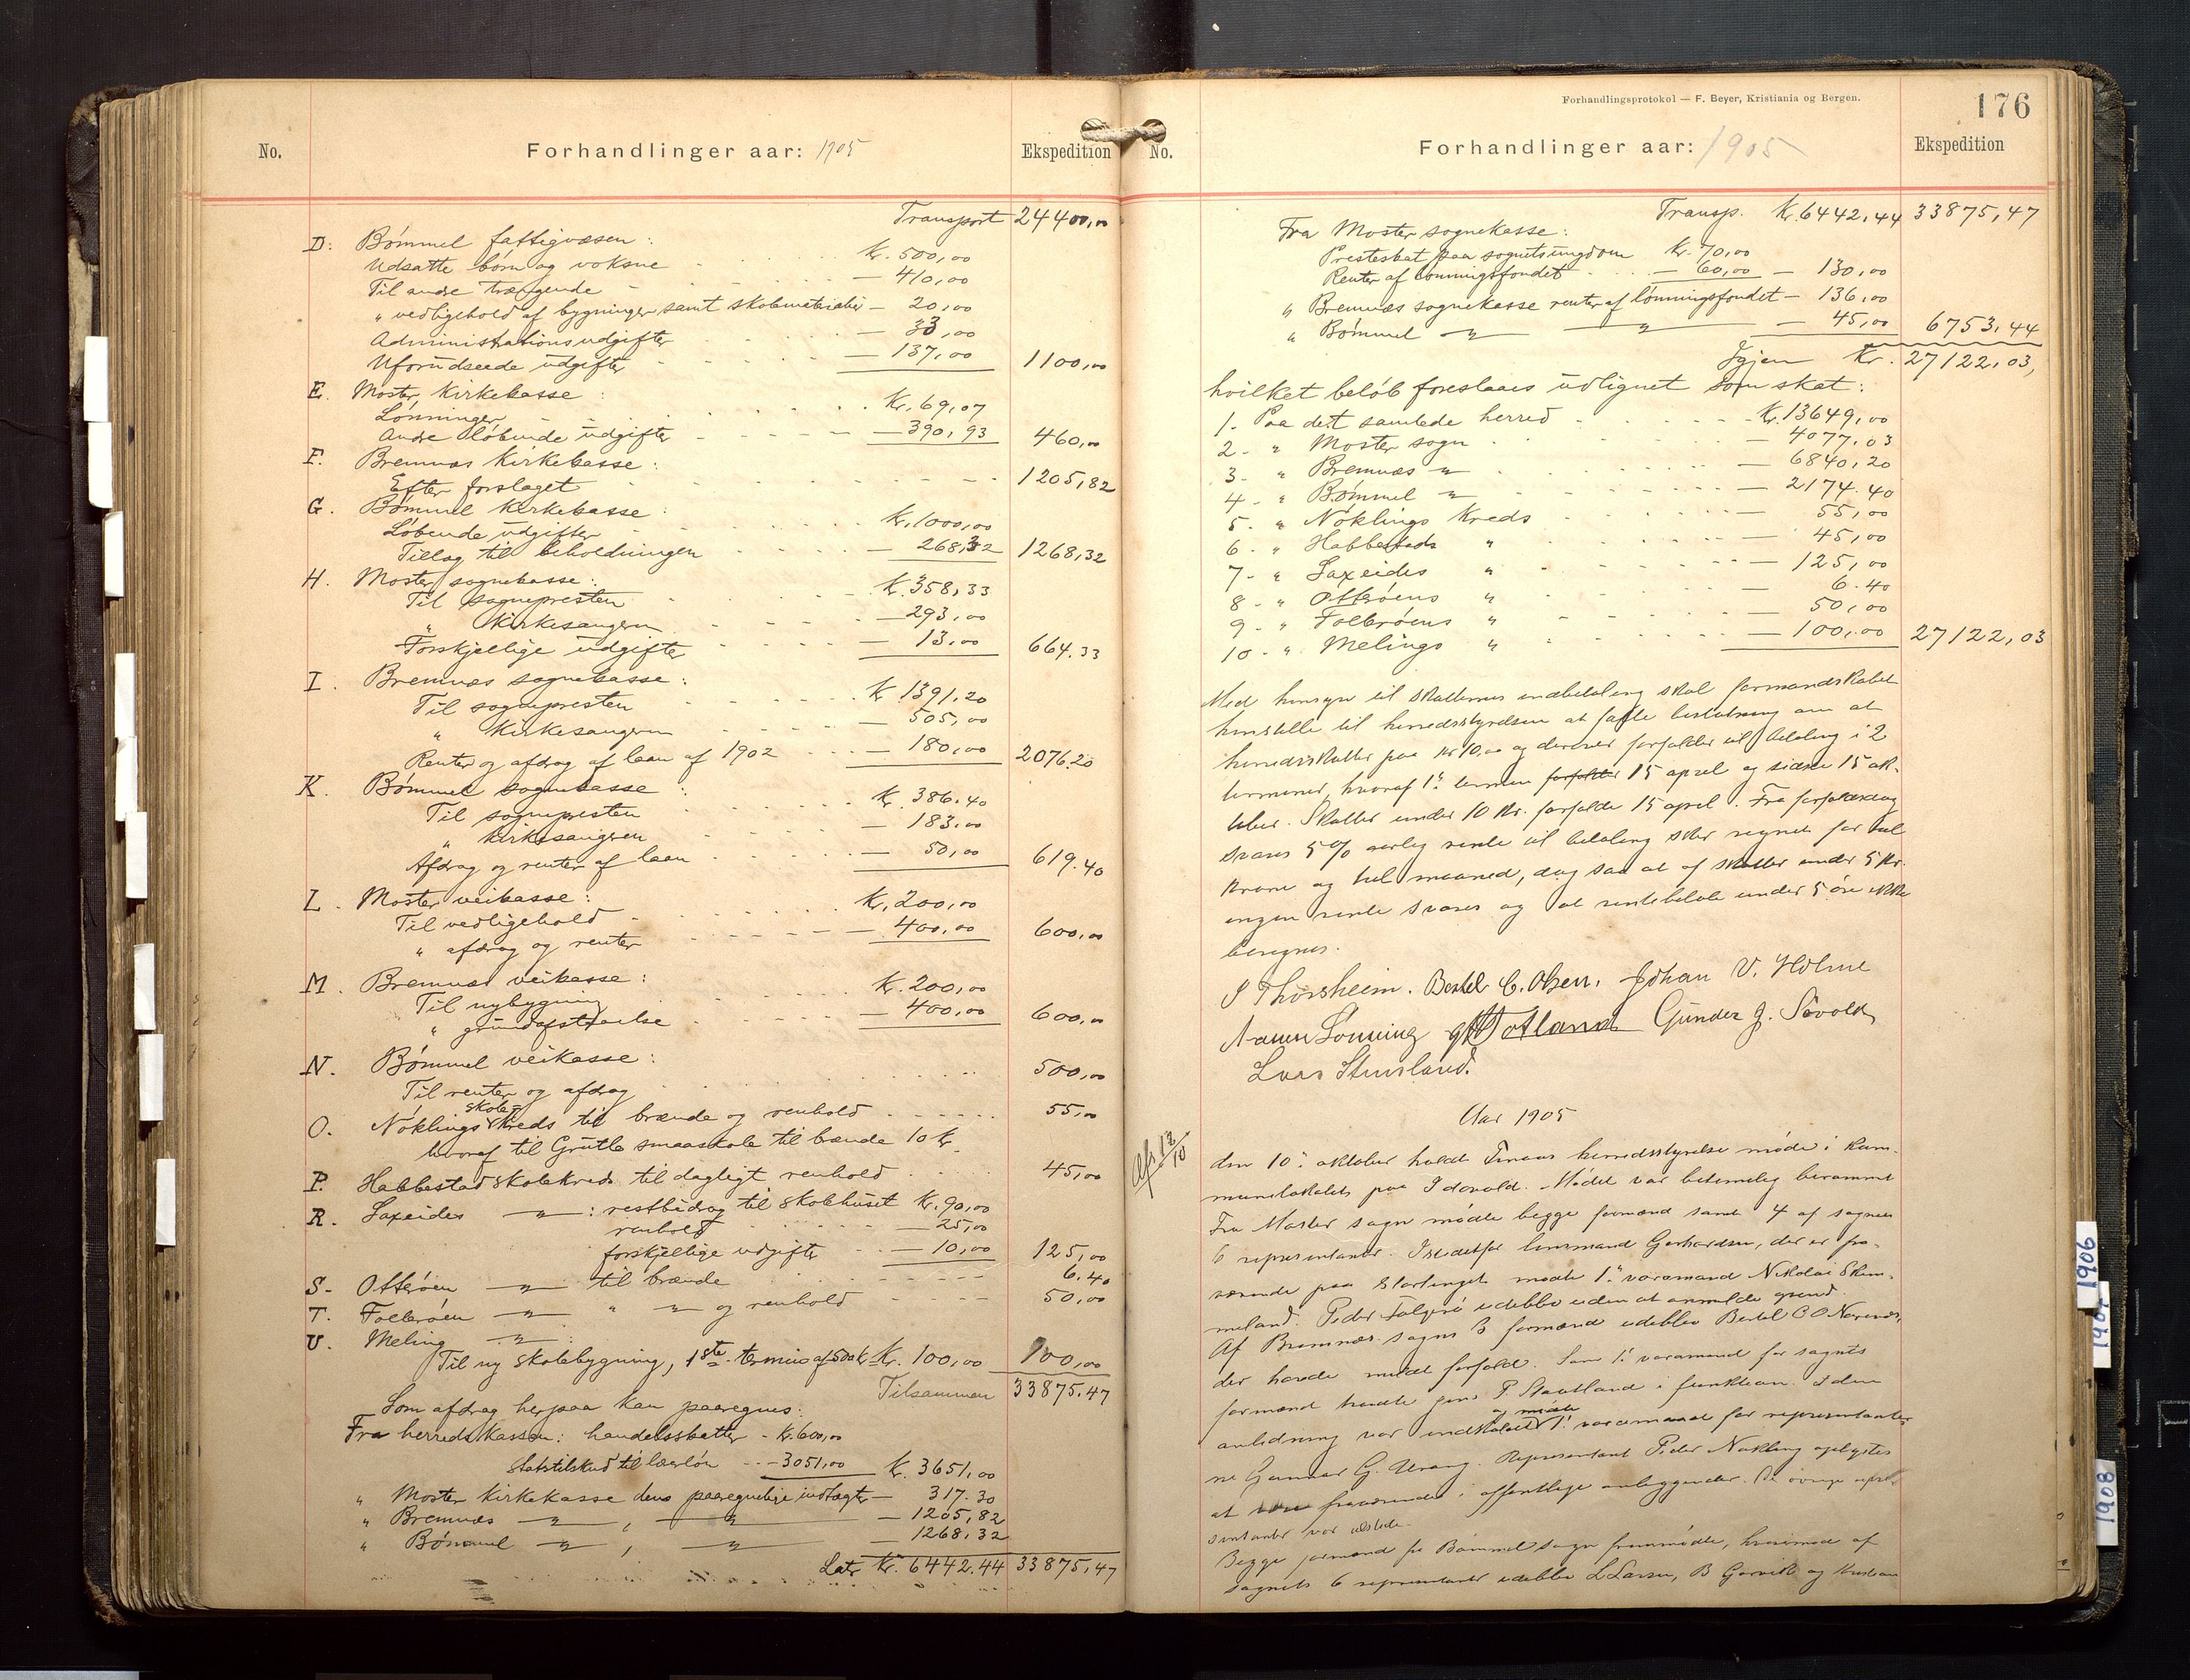 No. Forhandlinger aar: 1905 Ekspedition
Transport 24400,00
D: Bømmel fattigvæsen:
Udsatte børn og voksne Kr. 500,00
Til andre trængende — 410,00
" vedligehold af bygninger samt skolemateriel — 20,00
Administrationsudgifter — 33,00
Uforudseede udgifter — 137,00 1100,00
E. Moster kirkekasse:
Lønninger Kr. 69,07
Andre løbende udgifter — 390,93 460,00
F. Bremnæs kirkekasse:
Efter forslaget 1205,82
G. Bømmel kirkekasse:
Løbende udgifter Kr. 1000,00
Tillæg til beholdningen — 268,32 1268,32
H. Moster sognekasse:
Til sognepresten Kr. 358,33
" kirkesangeren — 293,00
Forskjellige udgifter — 13,00 664.33
I. Bremnæs sognekasse:
Til sognepresten Kr 1391.20
" kirkesangeren — 505,00
Renter og afdrag af laan af 1902 — 180,00 2076.20
K. Bømmel sognekasse:
Til sognepresten Kr. 386.40
" kirkesangeren — 183.00
Afdrag og renter af laan — 50,00 619.40
L. Moster veikasse:
Til vedligehold Kr. 200,00
" afdrag og renter — 400,00 600,00
M. Bremnæs veikasse:
Til nybygning Kr. 200,00
" grundafstaaelse — 400,00 600,00
N. Bømmel veikasse:
Til renter og afdrag 500,00
O. Nøklings skolekreds til brænde og renhold 55,00
hvoraf til Grutle smaaskole til brænde 10 kr.
P. Habbestad skolekreds til dagligt renhold 45,00
R. Laxeides — " — : restbidrag til skolehuset Kr. 90,00
renhold — 25,00
forskjellige udgifter — 10,00 125,00
S - Otterøen — " — til brænde 6.40
T. Folkrøen — " — " — " — og renhold 50,00
U. Meling — " — :
Til ny skolebygning, 1ste termin af 500 kr Kr. 100,00 100,00
Tilsammen 33875.47
Som afdrag herpaa kan paaregnes:
Fra herredskassen: handelsskatter - Kr. 600,00
Statstilskud til lærerløn — 3051,00 Kr. 3651,00
" Moster kirkekasse dens paaregnelige indtægter — 317.30
" Bremnæs — " — , — " — — 1205,82
" Bømmel — " — , — " — 1268.32
Lat. Kr. 6442.44 33875,47
Forhandlingsprotokol — F. Beyer, Kristiania og Bergen.
176
No. Forhandlinger aar: 1905 Ekspedition
Transp. Kr. 6442,44 33875,47
Fra Moster sognekasse:
Presteskat paa sognets ungdom Kr. 70,00
Renter af lønningsfondet — 60,00 — 130,00
" Bremnæs sognekasse renter af lønningsfondet — 136,00
" Bømmel — " — — " — — 45,00 6753,44
Igjen Kr. 27122,03,
hvilket beløb foreslaaes udlignet som skat:
1. Paa det samlede herred Kr. 13649,00
2 - " Moster sogn — 4077.03
3 - " Bremnæs " — 6840,20
4 - " Bømmel " — 2174.40
5 - " Nøklings Kreds — 55,00
6 - " Habbestads " — 45,00
7 - " Laxeides " — 125,00
8 - " Otterøens " — 6.40
9 - " Folkrøens " — 50,00
10 - " Melings " — 100,00 27122,03
Med hensyn til skatternes indbetaling skal formandskabet
henstille til herredsstyrelsen at fatte beslutning om at
herredsskatter paa kr 10,00 og derover forfalder til betaling i 2
terminer, hvoraf 1ste termin forfalder 15 april og sidste 15 ok-
tober. Skatter under 10 kr. forfalde 15 april. Fra forfaldsdag
svares 5 % aarlig rente til betaling sker regnet for hel
krone og hel maaned, dog saa at af skatter under 5 kr.
ingen rente svares og at rentebeløb under 5 øre ikke
beregnes.
S Thorsheim. Bertel C. Olsen. Johan V. Holme
Lønning Totland Gunder J. Søvold
Lars Stensland.
Aar 1905
Afs 12/10
den 10de oktober holdt Finaas herredsstyrelse møde i kom-
munelokalet paa Idevold. Mødet var betimelig berammet
Fra Moster sogn mødte begge formænd samt 4 af sognets
6 repræsentanter. Istedetfor lensmand Gerhardsen, der er fra-
værende paa Stortinget mødte 1ste varamand Nikolai Stem-
meland. Peder udeblev uden at anmelde grund.
Af Bremnæs sogns 3 formænd udeblev Bertel C O
der havde meldt forfald. Som 1ste varamand for sognets
formænd traadte P. Stautland i funktion. I den
anledning var indkaldt og mødte 1ste varamand for repræsentanter-
ne Gunnar G. Urang. Repræsentant Peder Nøkling oplystes
at være fraværende i offentlige anliggender. De øvrige repræ-
sentanter var tilstede.
Begge formænd fra Bømmel sogn fremmødte, hvorimod af
sognets 6 repræsentanter udeblev L Larsen, B Gorvik og
1906
1907
1908